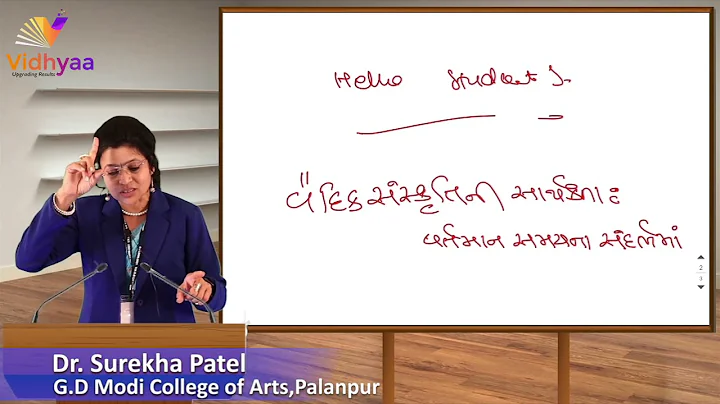 Vidhyaa
Upgrading Results
Hello Students.
વૈદિક સંસ્કૃતિની સાર્થકતા :
વર્તમાન સમયના સંદર્ભમાં
2
3
Dr. Surekha Patel
G.D Modi College of Arts,Palanpur